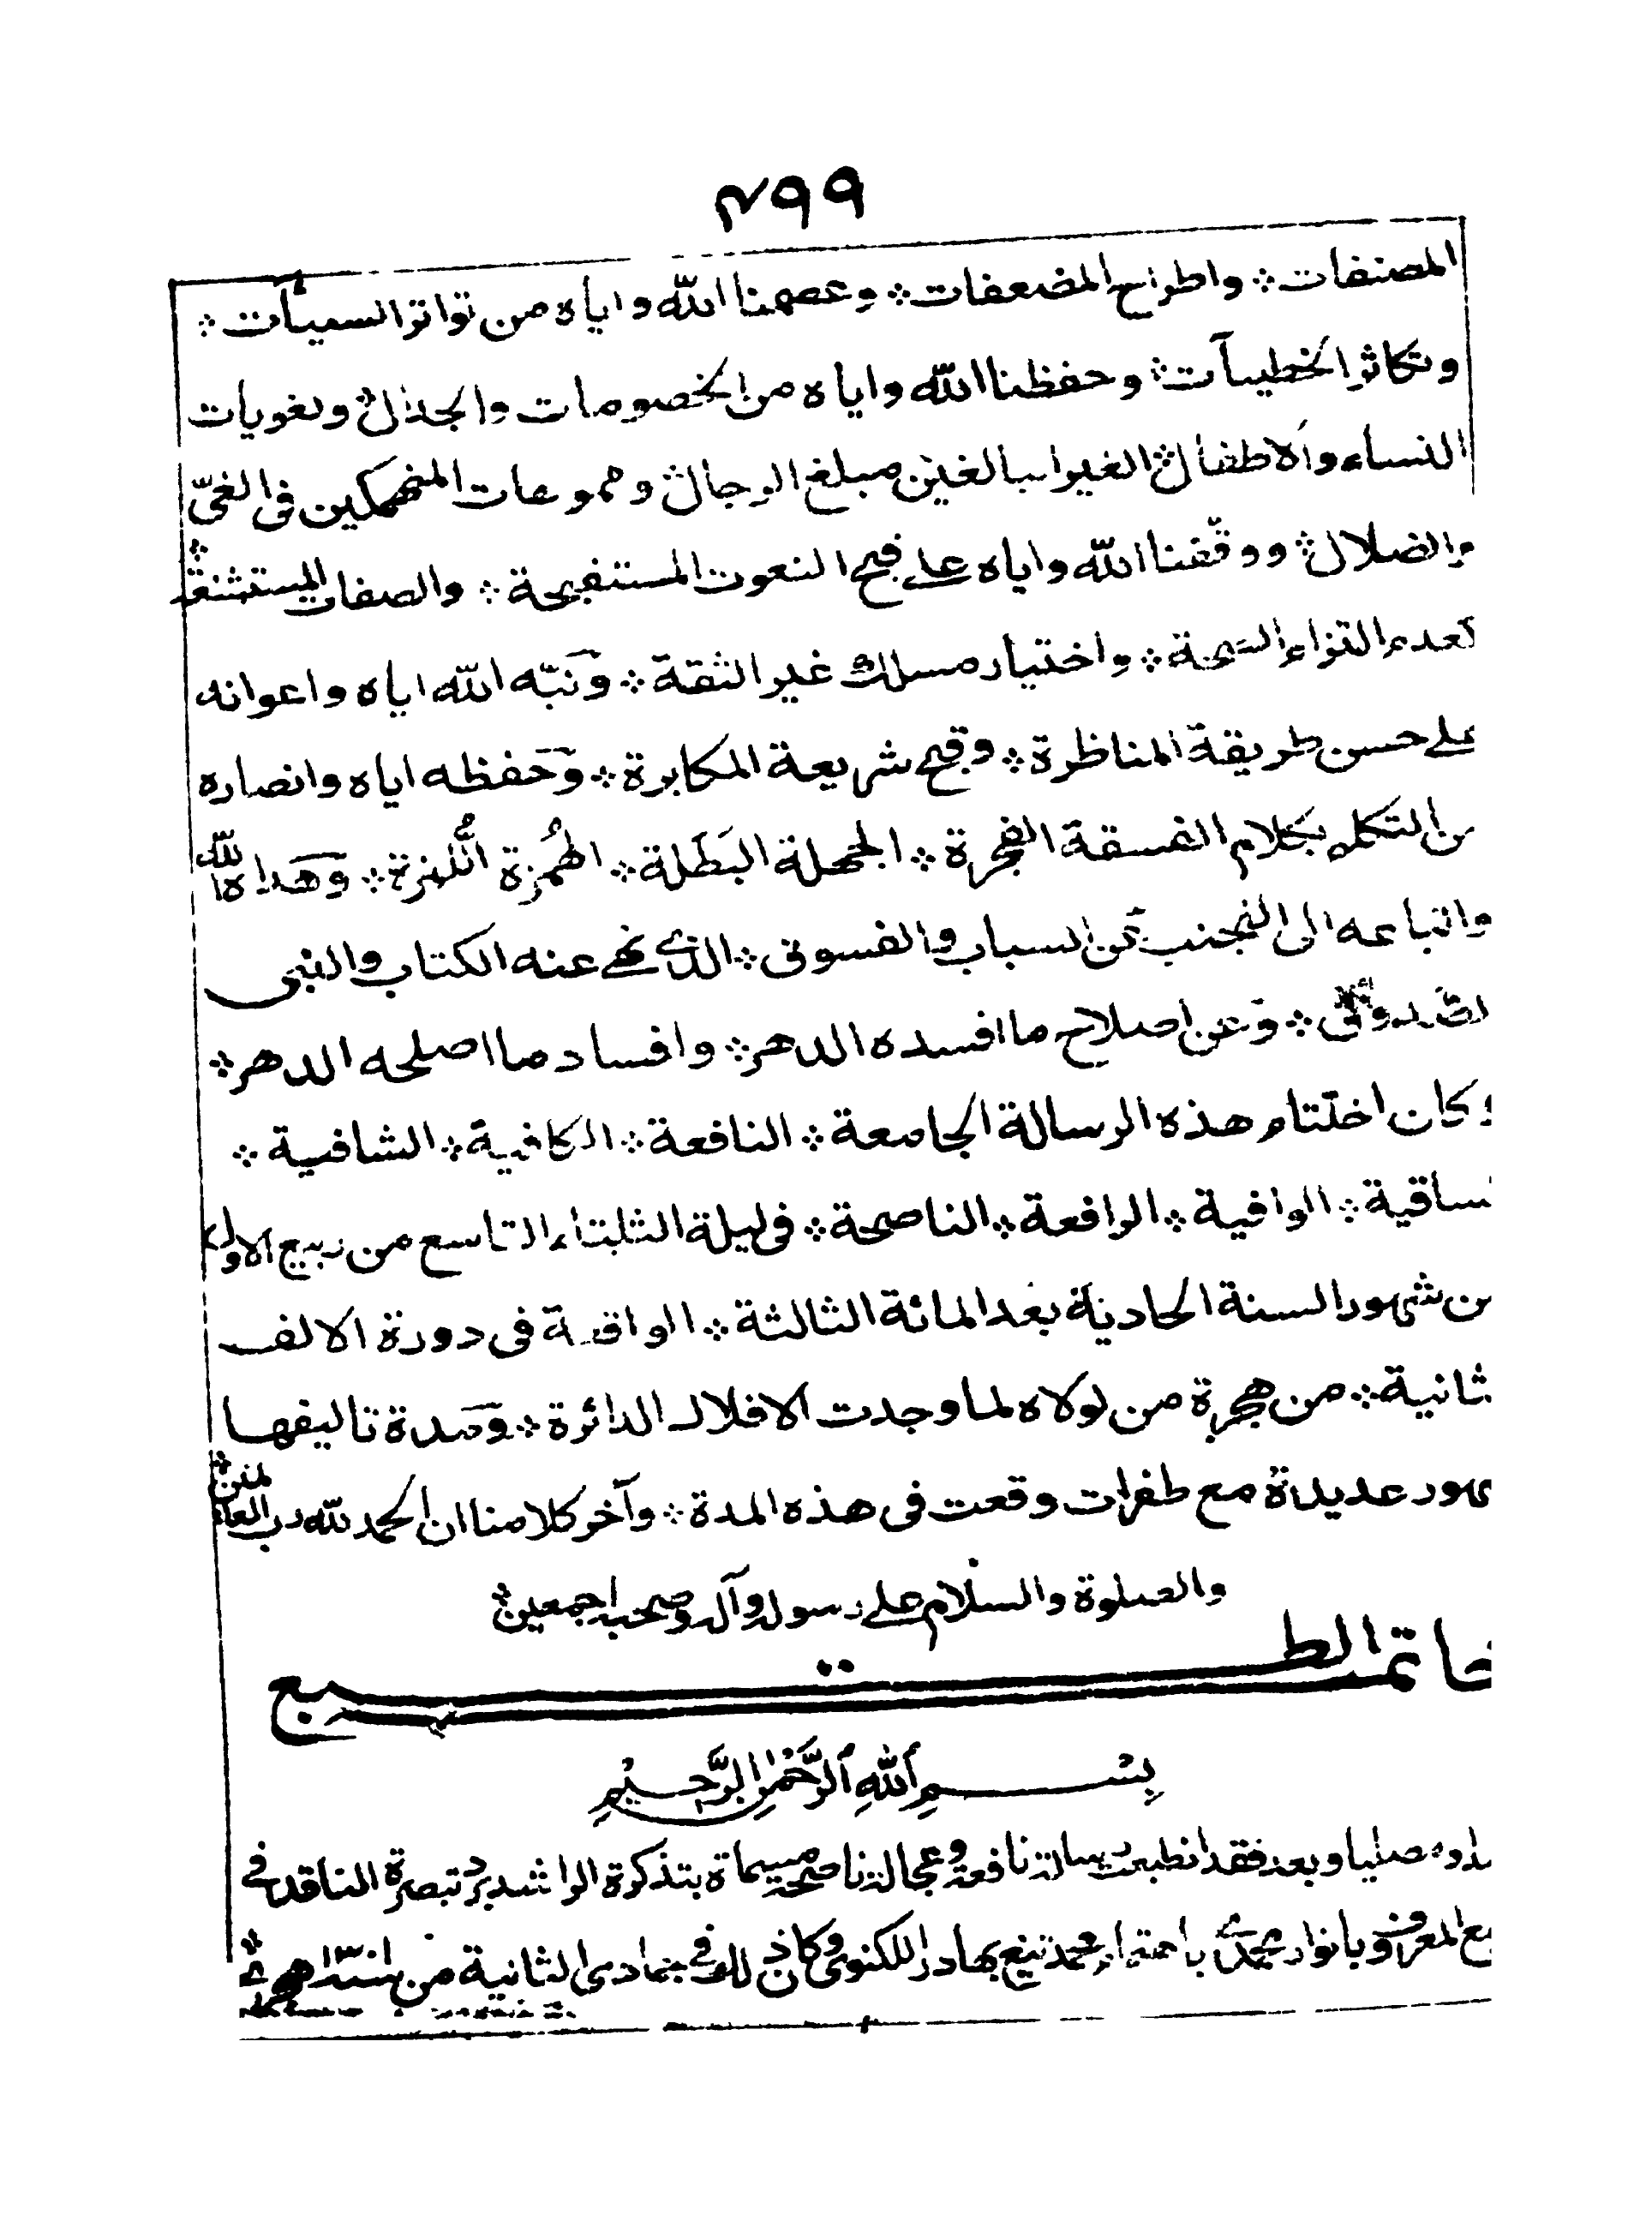 ٤٩٩
المصنفات ۞ واطراح المضعفات ۞ وعصمنا الله واياه من تواتر السيئات ۞
وتكاثر الخطيئات ۞ وحفظنا الله واياه من الخصومات والجدال ۞ ولغويات
النساء والاطفال ۞ الغير البالغين مبلغ الرجال ۞ وهموعات المنهمكين فى الغىّ
والضلال ۞ ووقّفنا الله واياه على قبح النعوت المستقبحة ۞ والصفات المستشنعة ۞
لعدم التزاء الصحة ۞ واختيار مسلك غير الثقة ۞ ونبّه الله اياه واعوانه
على حسن طريقة المناظرة ۞ وقبح شريعة المكابرة ۞ وحفظه اياه وانصاره
من التكلم بكلام الفسقة الفجرة ۞ الجهلة البَطَلة ۞ الهُمزة اللُّمزة ۞ وهداه الله
واتباعه الى التجنب عن السباب والفسوق ۞ الذى نهى عنه الكتاب والنبى
الصدوق ۞ وعن اصلاح ما افسده الدهر ۞ وافساد ما اصلحه الدهر ۞
وكان اختتام هذه الرسالة الجامعة ۞ النافعة ۞ الكافية ۞ الشافية ۞
الساقية ۞ الوافية ۞ الرافعة ۞ الناصحة ۞ فى ليلة الثلثاء التاسع من ربيع الاول
من شهور السنة الحادية بعد المائة الثالثة ۞ الواقعة فى دورة الالف
الثانية ۞ من هجرة من لولاه لما وجدت الافلاك الدائرة ۞ ومدة تاليفها
شهور عديدة مع طفرات وقعت فى هذه المدة ۞ وآخر كلامنا ان الحمد لله رب العالمين ۞
والصلوة والسلام على رسوله وآله وصحبه اجمعين ۞
خاتمة الطبع
بِسْمِ اللهِ الرَّحْمٰنِ الرَّحِيْمِ
ومصليا وبعد فقد انطبعت رسالة نافعة وعجالة ناصحة مسماة بتذكرة الراشد برد تبصرة الناقد فى
المعروف بانوار محمدى باهتمام محمد تيغ بهادر اللكنوى وكان ذلك فى جمادى الثانية من